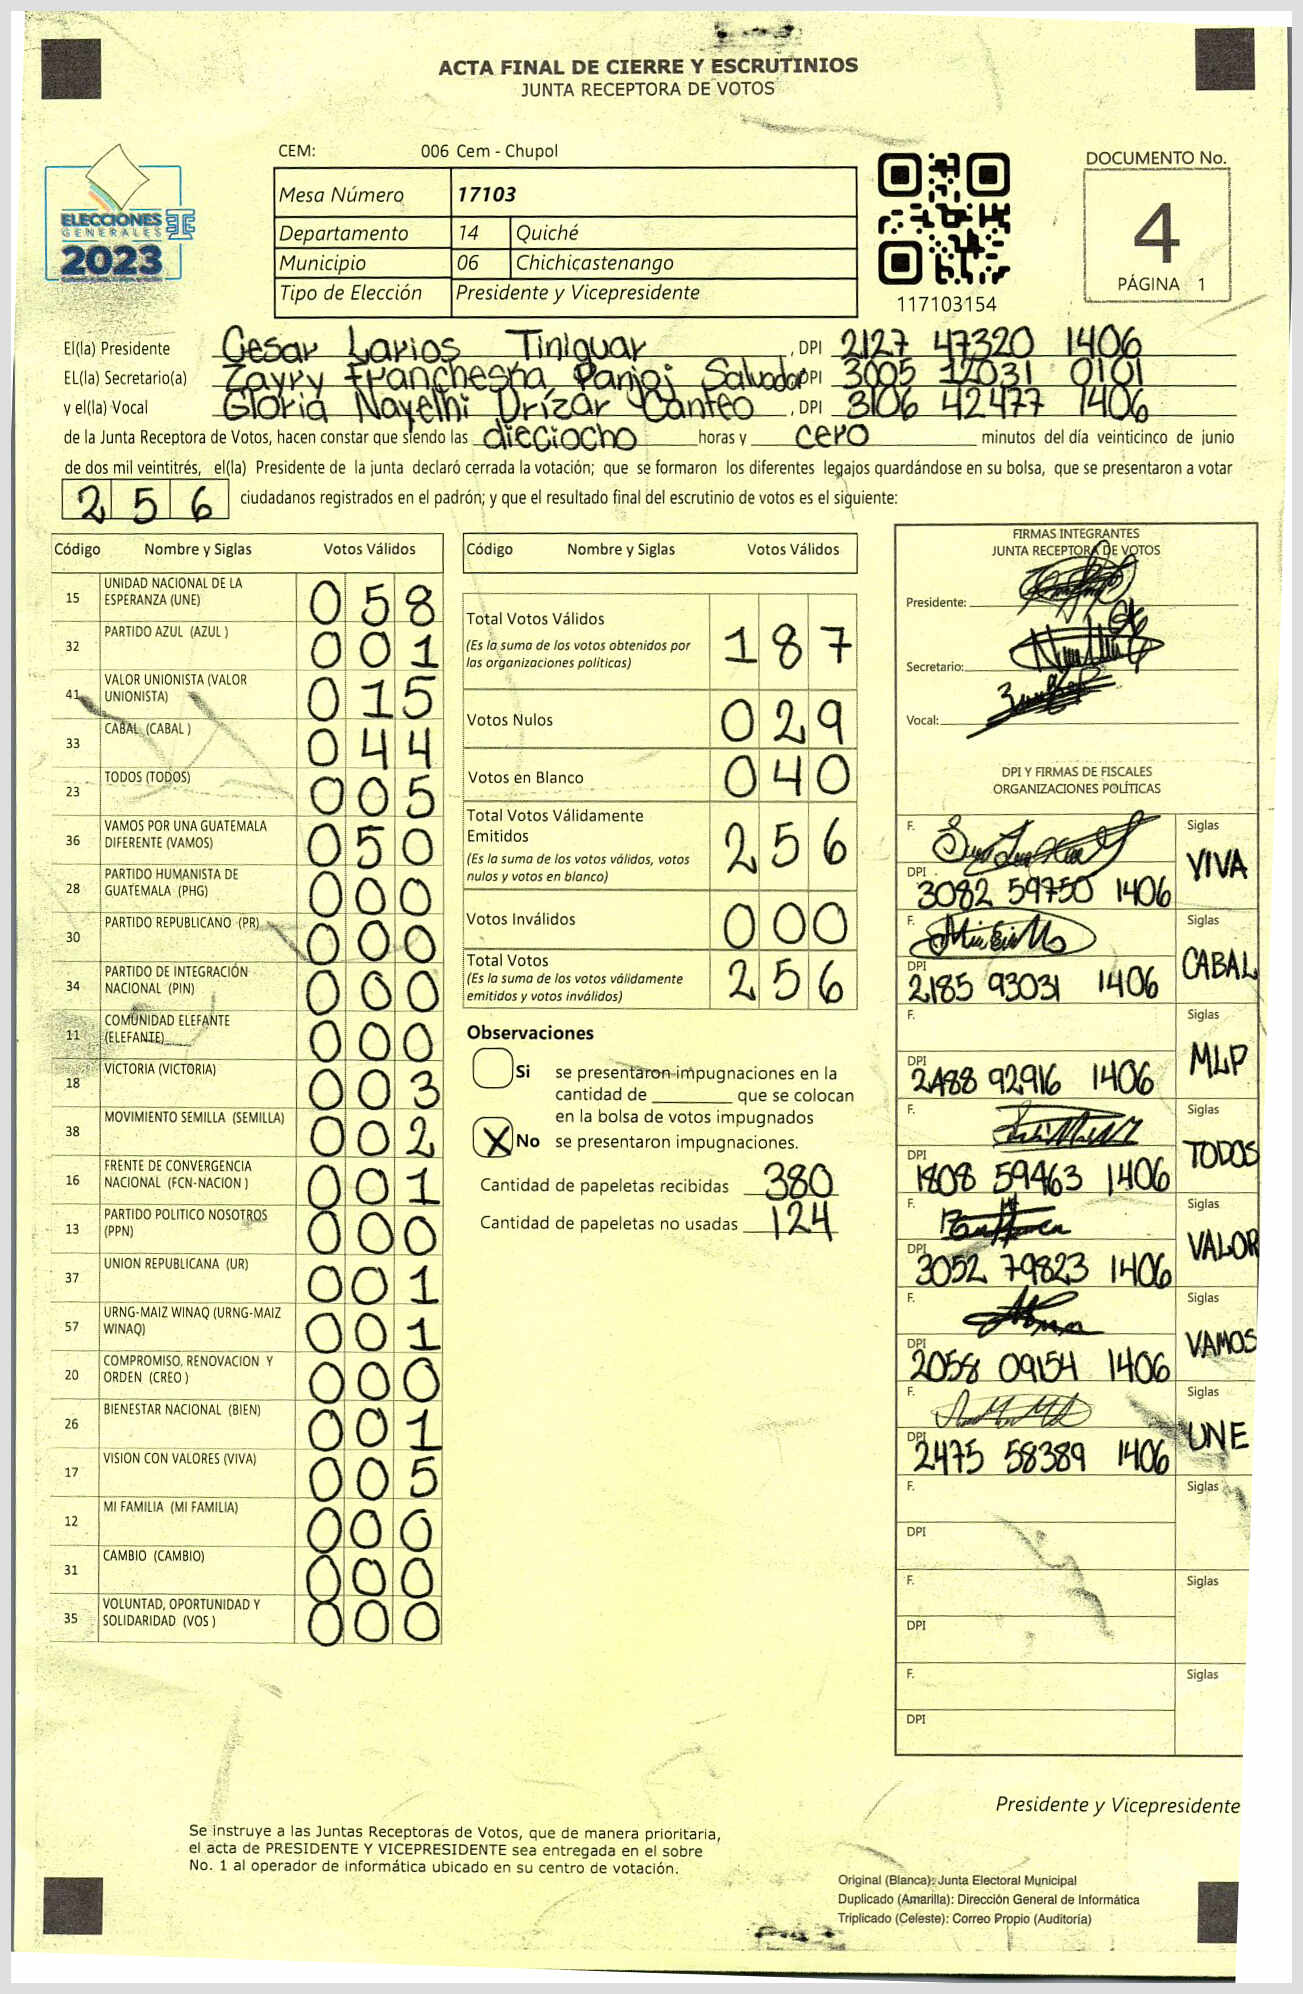 ACTA FINAL DE CIERRE Y ESCRUTINIOS
JUNTA RECEPTORA DE VOTOS
ELECCIONES
GENERALES
2023
CEM: 006 Cem - Chupol
Mesa Número 17103
Departamento 14 Quiché
Municipio 06 Chichicastenango
Tipo de Elección Presidente y Vicepresidente
117103154
DOCUMENTO No.
4
PÁGINA 1
El(la) Presidente Cesar Larios Tiniguar, DPI 2127 47320 1406
EL(la) Secretario(a) Zayry Francheska Panjoj Salvador DPI 3005 12031 0101
y el(la) Vocal Gloria Nayelhi Urízar Canteo, DPI 3106 42477 1406
de la Junta Receptora de Votos, hacen constar que siendo las dieciocho horas y cero minutos del día veinticinco de junio
de dos mil veintitrés, el(la) Presidente de la junta declaró cerrada la votación; que se formaron los diferentes legajos guardándose en su bolsa, que se presentaron a votar
256 ciudadanos registrados en el padrón; y que el resultado final del escrutinio de votos es el siguiente:
Código Nombre y Siglas Votos Válidos
15 UNIDAD NACIONAL DE LA ESPERANZA (UNE) 058
32 PARTIDO AZUL (AZUL ) 001
41 VALOR UNIONISTA (VALOR UNIONISTA) 015
33 CABAL (CABAL ) 044
23 TODOS (TODOS) 005
36 VAMOS POR UNA GUATEMALA DIFERENTE (VAMOS) 050
28 PARTIDO HUMANISTA DE GUATEMALA (PHG) 000
30 PARTIDO REPUBLICANO (PR) 000
34 PARTIDO DE INTEGRACIÓN NACIONAL (PIN) 000
11 COMUNIDAD ELEFANTE (ELEFANTE) 000
18 VICTORIA (VICTORIA) 003
38 MOVIMIENTO SEMILLA (SEMILLA) 002
16 FRENTE DE CONVERGENCIA NACIONAL (FCN-NACION ) 001
13 PARTIDO POLITICO NOSOTROS (PPN) 000
37 UNION REPUBLICANA (UR) 001
57 URNG-MAIZ WINAQ (URNG-MAIZ WINAQ) 001
20 COMPROMISO, RENOVACION Y ORDEN (CREO ) 000
26 BIENESTAR NACIONAL (BIEN) 001
17 VISION CON VALORES (VIVA) 005
12 MI FAMILIA (MI FAMILIA) 000
31 CAMBIO (CAMBIO) 000
35 VOLUNTAD, OPORTUNIDAD Y SOLIDARIDAD (VOS ) 000
Código Nombre y Siglas Votos Válidos
Total Votos Válidos 187
(Es la suma de los votos obtenidos por
las organizaciones politicas)
Votos Nulos 029
Votos en Blanco 040
Total Votos Válidamente
Emitidos 256
(Es la suma de los votos válidos, votos
nulos y votos en blanco)
Votos Inválidos 000
Total Votos 256
(Es la suma de los votos válidamente
emitidos y votos inválidos)
Observaciones
Si se presentaron impugnaciones en la
cantidad de ________ que se colocan
en la bolsa de votos impugnados
X No se presentaron impugnaciones.
Cantidad de papeletas recibidas 380
Cantidad de papeletas no usadas 124
FIRMAS INTEGRANTES
JUNTA RECEPTORA DE VOTOS
Presidente:
Secretario:
Vocal:
DPI Y FIRMAS DE FISCALES
ORGANIZACIONES POLÍTICAS
F. Siglas VIVA
DPI 3082 59750 1406
F. Siglas CABAL
DPI 2185 93031 1406
F. Siglas MLP
DPI 2488 92916 1406
F. Siglas TODOS
DPI 1808 59463 1406
F. Siglas VALOR
DPI 3052 79823 1406
F. Siglas VAMOS
DPI 2058 09154 1406
F. Siglas UNE
DPI 2475 58389 1406
F. Siglas
DPI
F. Siglas
DPI
F. Siglas
DPI
Presidente y Vicepresidente
Se instruye a las Juntas Receptoras de Votos, que de manera prioritaria,
el acta de PRESIDENTE Y VICEPRESIDENTE sea entregada en el sobre
No. 1 al operador de informática ubicado en su centro de votación.
Original (Blanca): Junta Electoral Municipal
Duplicado (Amarilla): Dirección General de Informática
Triplicado (Celeste): Correo Propio (Auditoría)